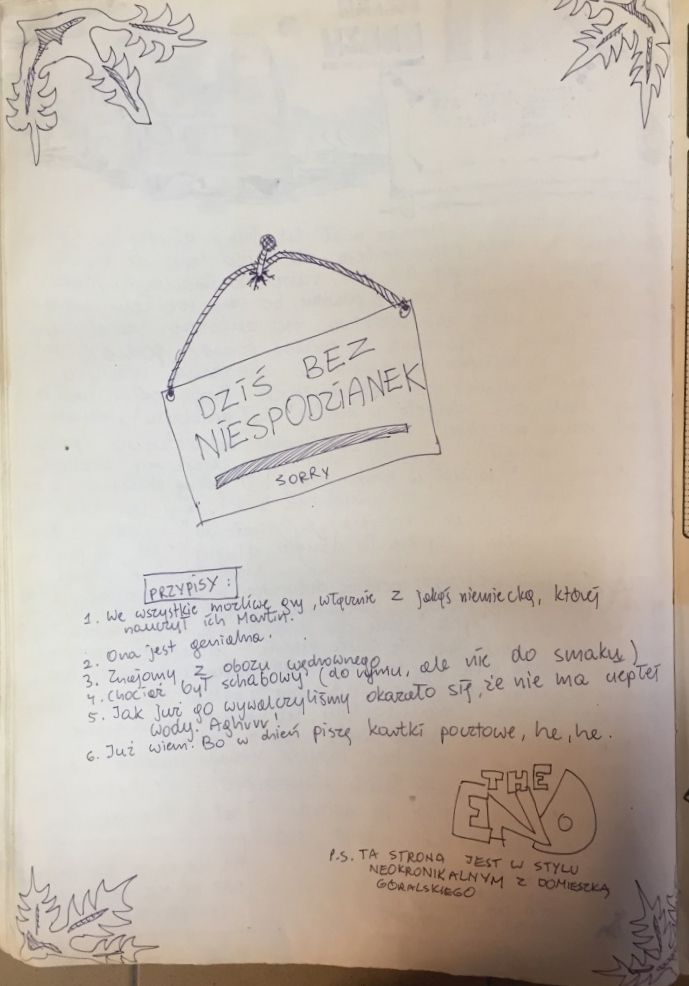 DZIŚ BEZ
NIESPODZIANEK
SORRY
PRZYPISY:
1. We wszystkie możliwe gry, włącznie z jakąś niemiecką, której
nauczył ich Martin.
2. Ona jest genialna.
3. Znajomy z obozu wędrownego
4. Chociaż był schabowy (do rymu, ale nie do smaku)
5. Jak już go wywalczyliśmy okazało się, że nie ma ciepłej
wody. Aghrrr!
6. Już wiem. Bo w dzień piszę kartki pocztowe, he, he.
THE
END
P.S. TA STRONA JEST W STYLU
NEOKRONIKALNYM Z DOMIESZKĄ
GÓRALSKIEGO